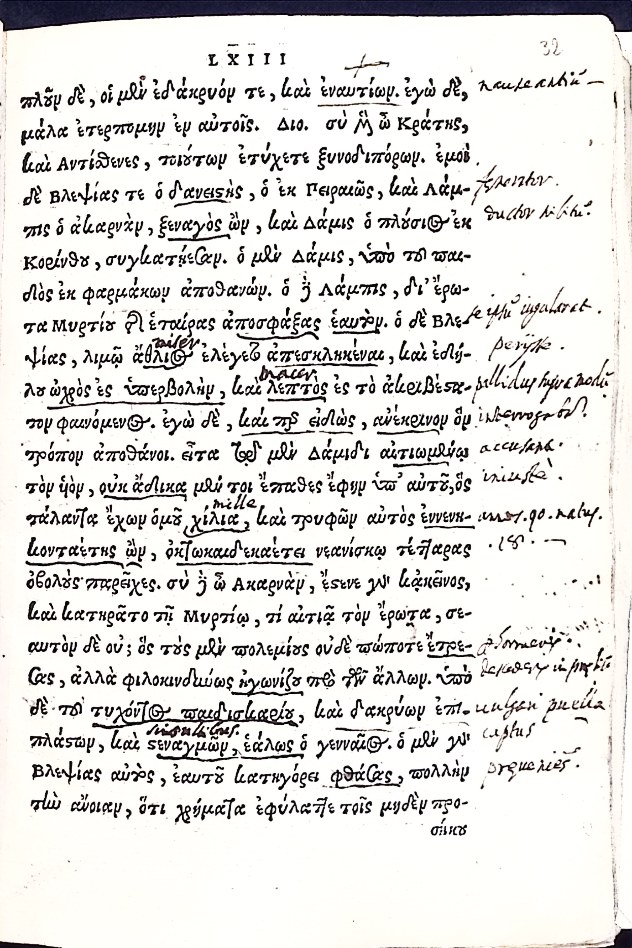 LXIII
32
πλοῦν δὲ, οἱ μὲν ἐδάκρυόν τε, καὶ ἐναυτίων. ἐγὼ δὲ,
μάλα ἐτερπομην ἐν αὐτοῖς. Διο. σὺ δὲ ὦ Κράτης,
καὶ Αντίσθενες, ποιούτων ἐτύχετε ξυνοδιπόρων. ἐμοὶ
δὲ Βλεψίας τε ὁ δανειστὴς, ὁ ἐκ Πειραιῶς, καὶ Λάμ-
πις ὁ ἀκαρνὰν, ξεναγὸς ὢν, καὶ Δάμις ὁ πλύσιος ἐκ
Κορίνθου, συγκατῄεσαν. ὁ μὲν Δάμις, ὑπὸ τοῦ παι-
δὸς ἐκ φαρμάκων ἀποθανών. ὁ δὲ Λάμπις, δι' ἔρω-
τα Μυρτίου τῆς ἑταίρας ἀποσφάξας ἑαυτὸν. ὁ δὲ Βλε-
ψίας, λιμῷ ἄθλιος ἐλέγετο ἀπεσκληκέναι, καὶ ἐδή-
λου ὠχρὸς ἐς ὑπερβολὴν, καὶ λεπτὸς ἐς τὸ ἀκριβέστα-
τον φαινόμενος. ἐγὼ δὲ, καίπερ εἰδὼς, ἀνέκρινον ὃν
τρόπον ἀποθάνοι. εἶτα τῷ μὲν Δάμιδι αἰτιωμένῳ
τὸν υἱὸν, οὐκ ἄδικα μέν τοι ἔπαθες ἔφην ὑπ' αὐτοῦ, ὃς
τάλαντα ἔχων ὁμοῦ χίλια, καὶ τρυφῶν αὐτὸς ἐννενη-
κονταέτης ὢν, ὀκτωκαιδεκαέτει νεανίσκῳ τέτταρας
ὀβολοὺς παρεῖχες. σὺ δὲ ὦ Ακαρνὰν, ἔστενε γὰρ κἀκεῖνος,
καὶ κατηρᾶτο τῇ Μυρτίῳ, τί αἰτιᾷ τὸν ἔρωτα, σε-
αυτὸν δὲ οὔ; ὃς τοὺς μὲν πολεμίους οὐδὲ πώποτε ἔτρε-
σας, ἀλλὰ φιλοκινδύνως ἠγωνίζου πρὸ τῶν ἄλλων. ὑπὸ
δὲ τοῦ τυχόντος παιδισκαρίου, καὶ δακρύων ἐπι-
πλάστων, καὶ στεναγμῶν, ἑάλως ὁ γενναῖος. ὁ μὲν γὰρ
Βλεψίας αὐτὸς, ἑαυτοῦ κατηγόρει φθάσας, πολλὴν
τὴν ἄνοιαν, ὅτι χρήματα ἐφύλαττε τοῖς μηδὲν προ-
σήκου
nauseantiū
ductor militū.
miser
periisse.
macer
pallidus supra modū
interrogabā.
accusanti.
iniustè.
mille
annos. 90. natus.
.18.
vulgari puella
singultibus.
captus